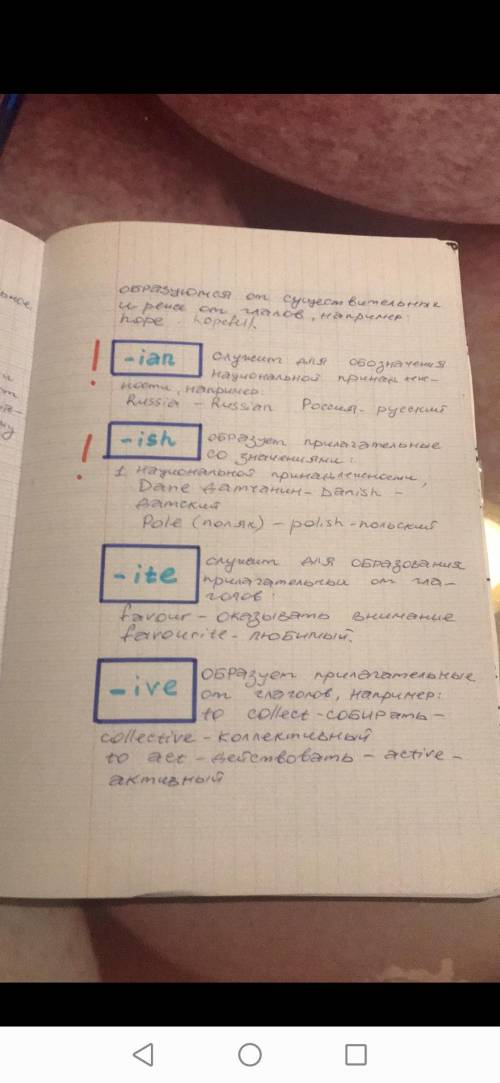 образуются от существительных
и реже от глаголов, например:
hope - hopeful.
! -ian служит для обозначения
национальной принадлеж-
ности, например:
Russia - Russian Россия - русский
! -ish образует прилагательные
со значениями:
1. национальной принадлежности,
Dane датчанин - Danish -
датский
Pole (поляк) - polish - польский
-ite служит для образования
прилагательных от гла-
голов:
favour - оказывать внимание
favourite - любимый.
-ive образует прилагательные
от глаголов, например:
to collect - собирать -
collective - коллективный
to act - действовать - active -
активный